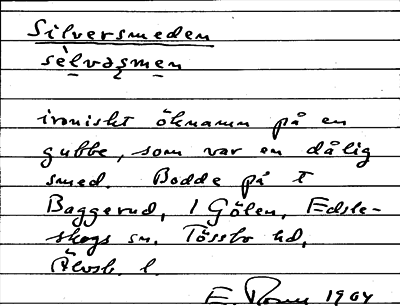 Silversmeden
sèlvəşmen
ironiskt öknamn på en
gubbe, som var en dålig
smed. Bodde på t
Baggerud, i Gölen, Edsle-
skogs sn. Tössbo hd,
Älvsb. l.
E. 1904